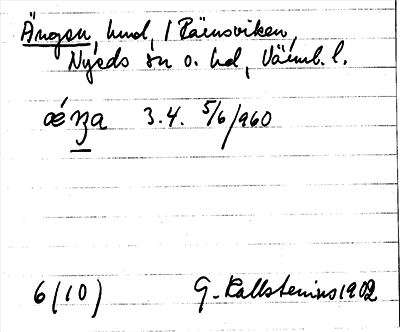 Ängen, hmd, 1 Ränsviken,
Nyeds sn o. hd, Värml. l.
ǽŋa 3.4. 5/6/960
6(10) G. Kallstenius 1902